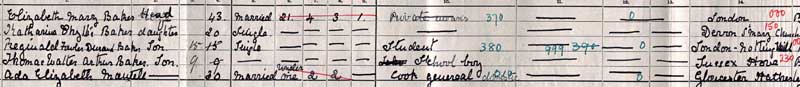 Elizabeth Mary Baker Head 43 Married 21 4 3 1 Private means 370 0 London 000
Katharine Phyllis Baker daughter 20 Single Devon St Mary Church 150
Reginald Baker Son 15 15 Single Student 380 999 390 0 London - Notting Hill
Thomas Walter Arthur Baker Son 9 9 School boy Sussex Hove 230
Ada Elizabeth 30 Married under one 2 2 Cook general domestic 0 Gloucester